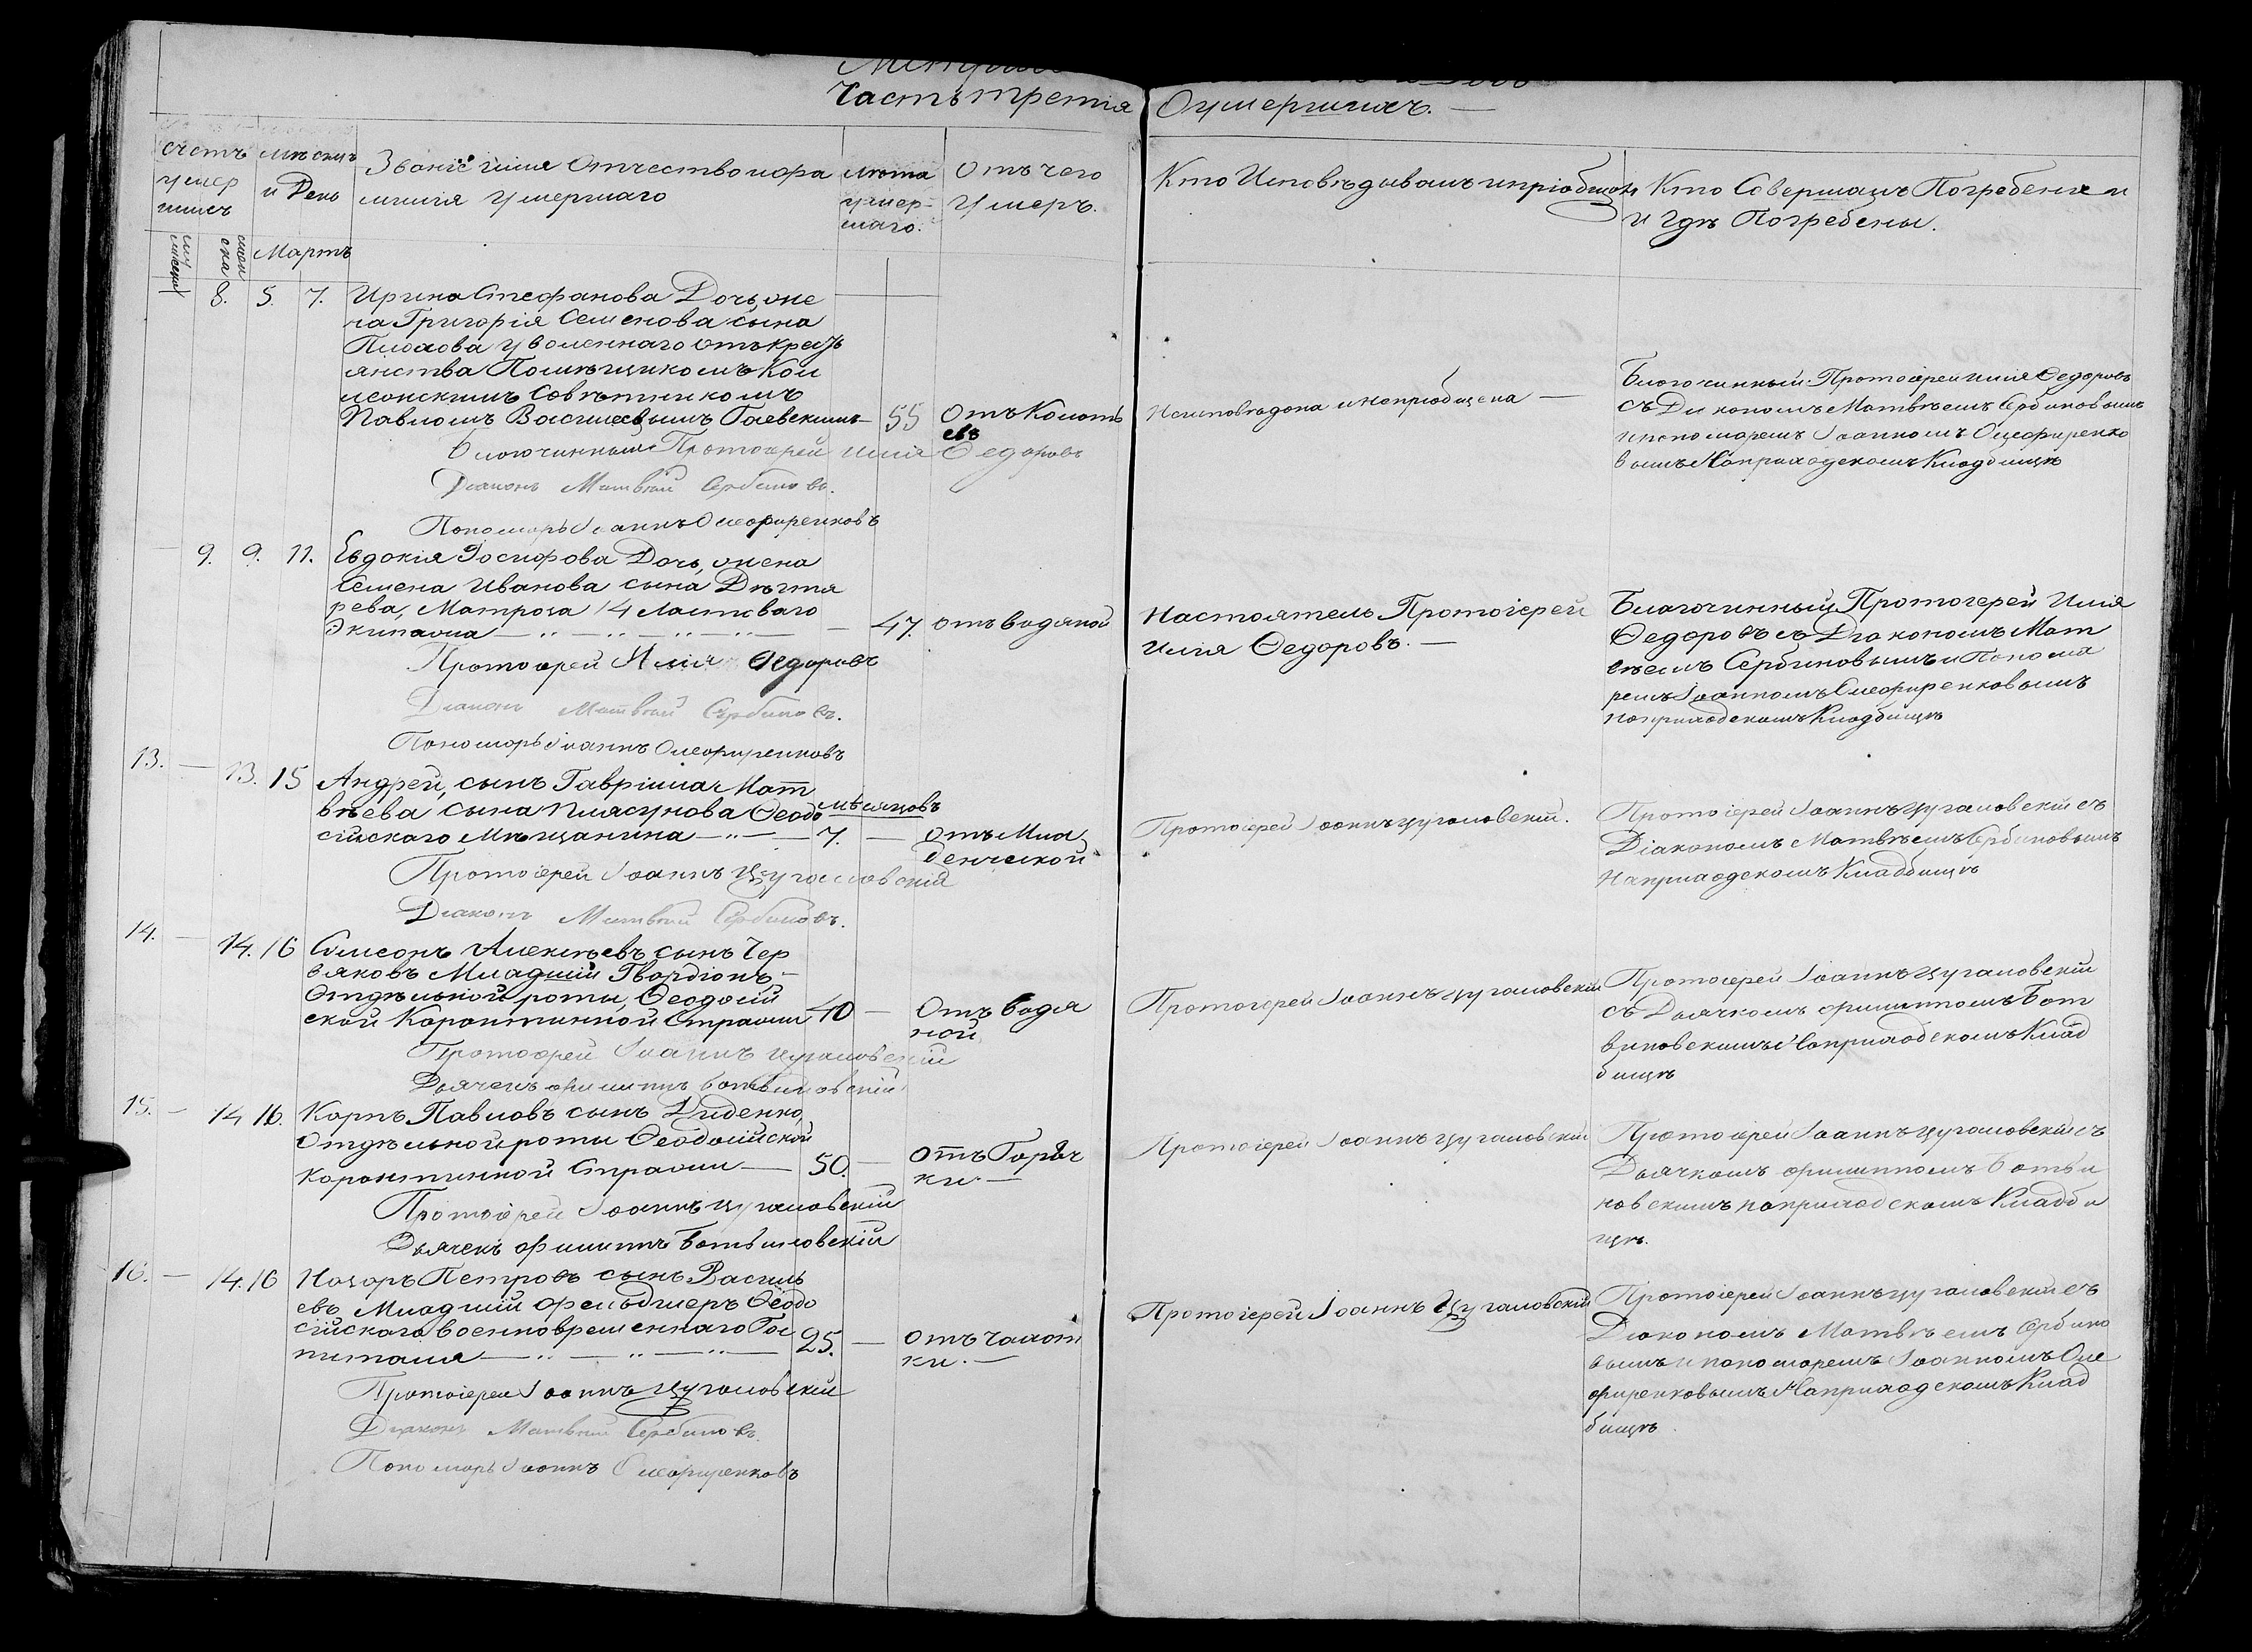 Часть третія О умершихъ.
Счетъ умершихъ
Мѣсяцъ и День
Званіе имя Отчество и фамилія умершаго
Лѣта умершаго.
Отъ чего умеръ.
Кто Исповѣдывалъ и пріобщалъ
Кто Совершалъ Погребеніе и
и гдѣ Погребены.
Мартъ
8. 5. 7. Ирина Стефанова Дочь, же
на Григорія Семенова сына
уволеннаго отъ кресть
янства Помѣщикомъ Кол
лежскимъ Совѣтникомъ
Павломъ Васильевымъ Гаевскимъ 55
Неисповѣдана и непріобщена
Благочинный Протоіерей Илія Ѳедоровъ
съ Діакономъ Матвѣемъ Сербиновымъ
и пономаремъ Іоанномъ Олефиренко
вымъ На приходскомъ Кладбищѣ
Благочинный Протоіерей Илія Ѳедоровъ
Діаконъ Матвѣй Сербиновъ.
Пономарь Іоаннъ Олефиренковъ
9. 9. 11. Евдокія Іосифова Дочь, жена
Семена Иванова сына Дѣгтя
рева, Матроза 14 Ластоваго
Экипажа 47. отъ водяной
Настоятель Протоіерей
Илія Ѳедоровъ.
Благочинный Протоіерей Илія
Ѳедоровъ съ Діакономъ Мат
вѣемъ Сербиновымъ и Понома
ремъ Іоанномъ Олефиренковымъ
на приходскомъ Кладбищѣ
Протоіерей Илія Ѳедоровъ
Діаконъ Матвѣй Сербиновъ.
Пономарь Іоаннъ Олефиренковъ
13. 13. 15 Андрей, сынъ Гавріила Мат
вѣева сына Плясунова Ѳеодо
сійскаго Мѣщанина 7. мѣсяцовъ
Отъ Мла
денческой
Протоіерей Іоаннъ Цугаловскій.
Протоіерей Іоаннъ Цугаловскій съ
Діакономъ Матвѣемъ Сербиновымъ
На приходскомъ Кладбищѣ
Протоіерей Іоаннъ Цугаловскій
Діаконъ Матвѣй Сербиновъ.
14. 14. 16 Симеонъ Алексѣевъ сынъ Чер
вяковъ Младшій Гвардіонъ
Отдѣльной роты, Ѳеодосій
ской Карантинной Стражи 40
Отъ водя
ной
Протоіерей Іоаннъ Цугаловскій
Протоіерей Іоаннъ Цугаловскій
съ Дьячкомъ Филиппомъ Бот
виновскимъ На приходскомъ Клад
бищѣ
Протоіерей Іоаннъ Цугаловскій
Дьячекъ Филиппъ Ботвиновскій
15. 14 16. Карпъ Павловъ сынъ Диденко,
Отдѣльной роты Ѳеодосійской
Карантинной Стражи 50.
Отъ Горяч
ки.
Протоіерей Іоаннъ Цугаловскій
Протоіерей Іоаннъ Цугаловскій съ
Дьячкомъ Филиппомъ Ботви
новскимъ на приходскомъ Кладби
щѣ.
Протоіерей Іоаннъ Цугаловскій
Дьячекъ Филиппъ Ботвиновскій
16. 14. 16 Назаръ Петровъ сынъ Василь
евъ Младшій Фельдшеръ Ѳеодо
сійскаго Военновременнаго Гос
питаля 25.
отъ чахот
ки.
Протоіерей Іоаннъ Цугаловскій
Протоіерей Іоаннъ Цугаловскій съ
Діакономъ Матвѣемъ Сербино
вымъ и пономаремъ Іоанномъ Оле
фиренковымъ На приходскомъ Клад
бищѣ
Протоіерей Іоаннъ Цугаловскій
Діаконъ Матвѣй Сербиновъ.
Пономарь Іоаннъ Олефиренковъ